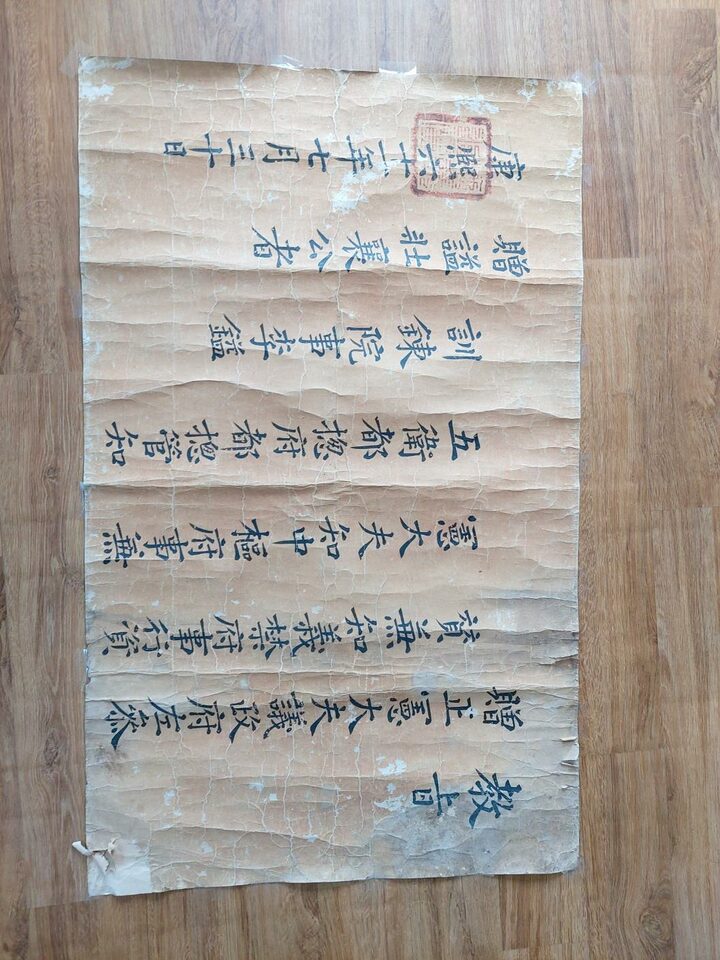 教旨
贈正憲大夫議政府左參
贊兼知義禁府事行資
憲大夫知中樞府事兼
五衛都揔府都揔管知
訓鍊院事李鎰
贈諡壯襄公者
康熙六十一年七月三十日